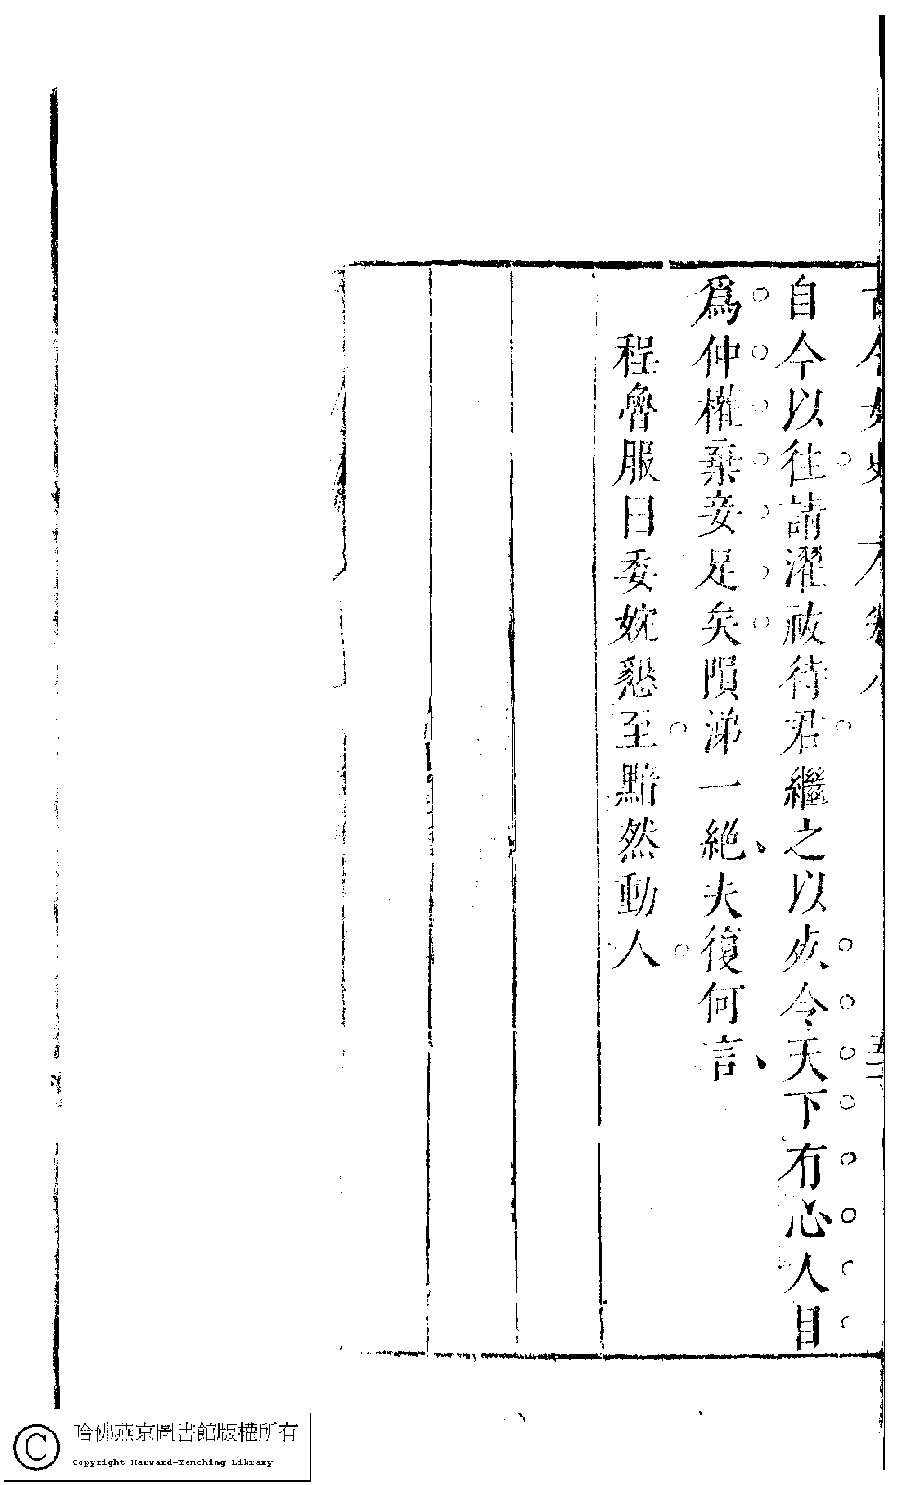 自今以往請濯祓待君繼之以死令天下有心人目
爲仲權棄妾足矣隕涕一絕夫復何言
程魯服曰委婉懇至黯然動人
哈佛燕京圖書館版權所有
Copyright Harvard-Yenching Library